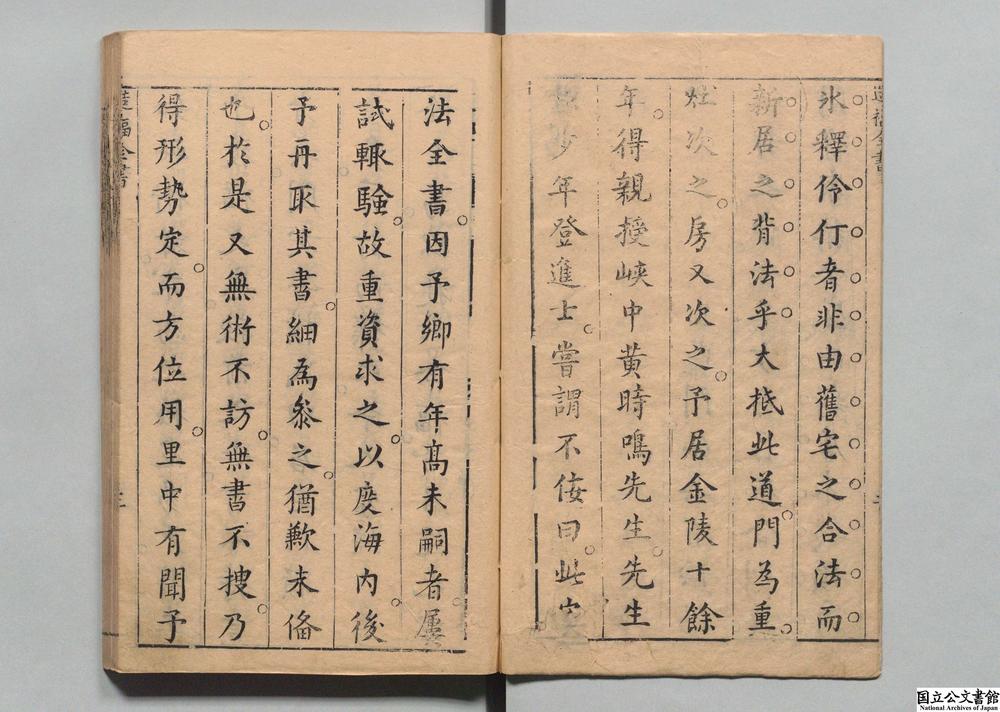 氷釋伶仃者非由舊宅之合法而
新居之背法乎大抵此道門為重
次之房又次之予居金陵十餘
年得親授峽中黄時鳴先生先生
少年登進士嘗謂不佞曰此宅
法全書因予鄉有年髙未嗣者屢
試輒驗故重資求之以度海内後
予再取其書細為叅之猶歉未偹
也於是又無術不訪無書不搜乃
得形勢定而方位用里中有聞予
造福全書
國立公文書館
National Archives of Japan